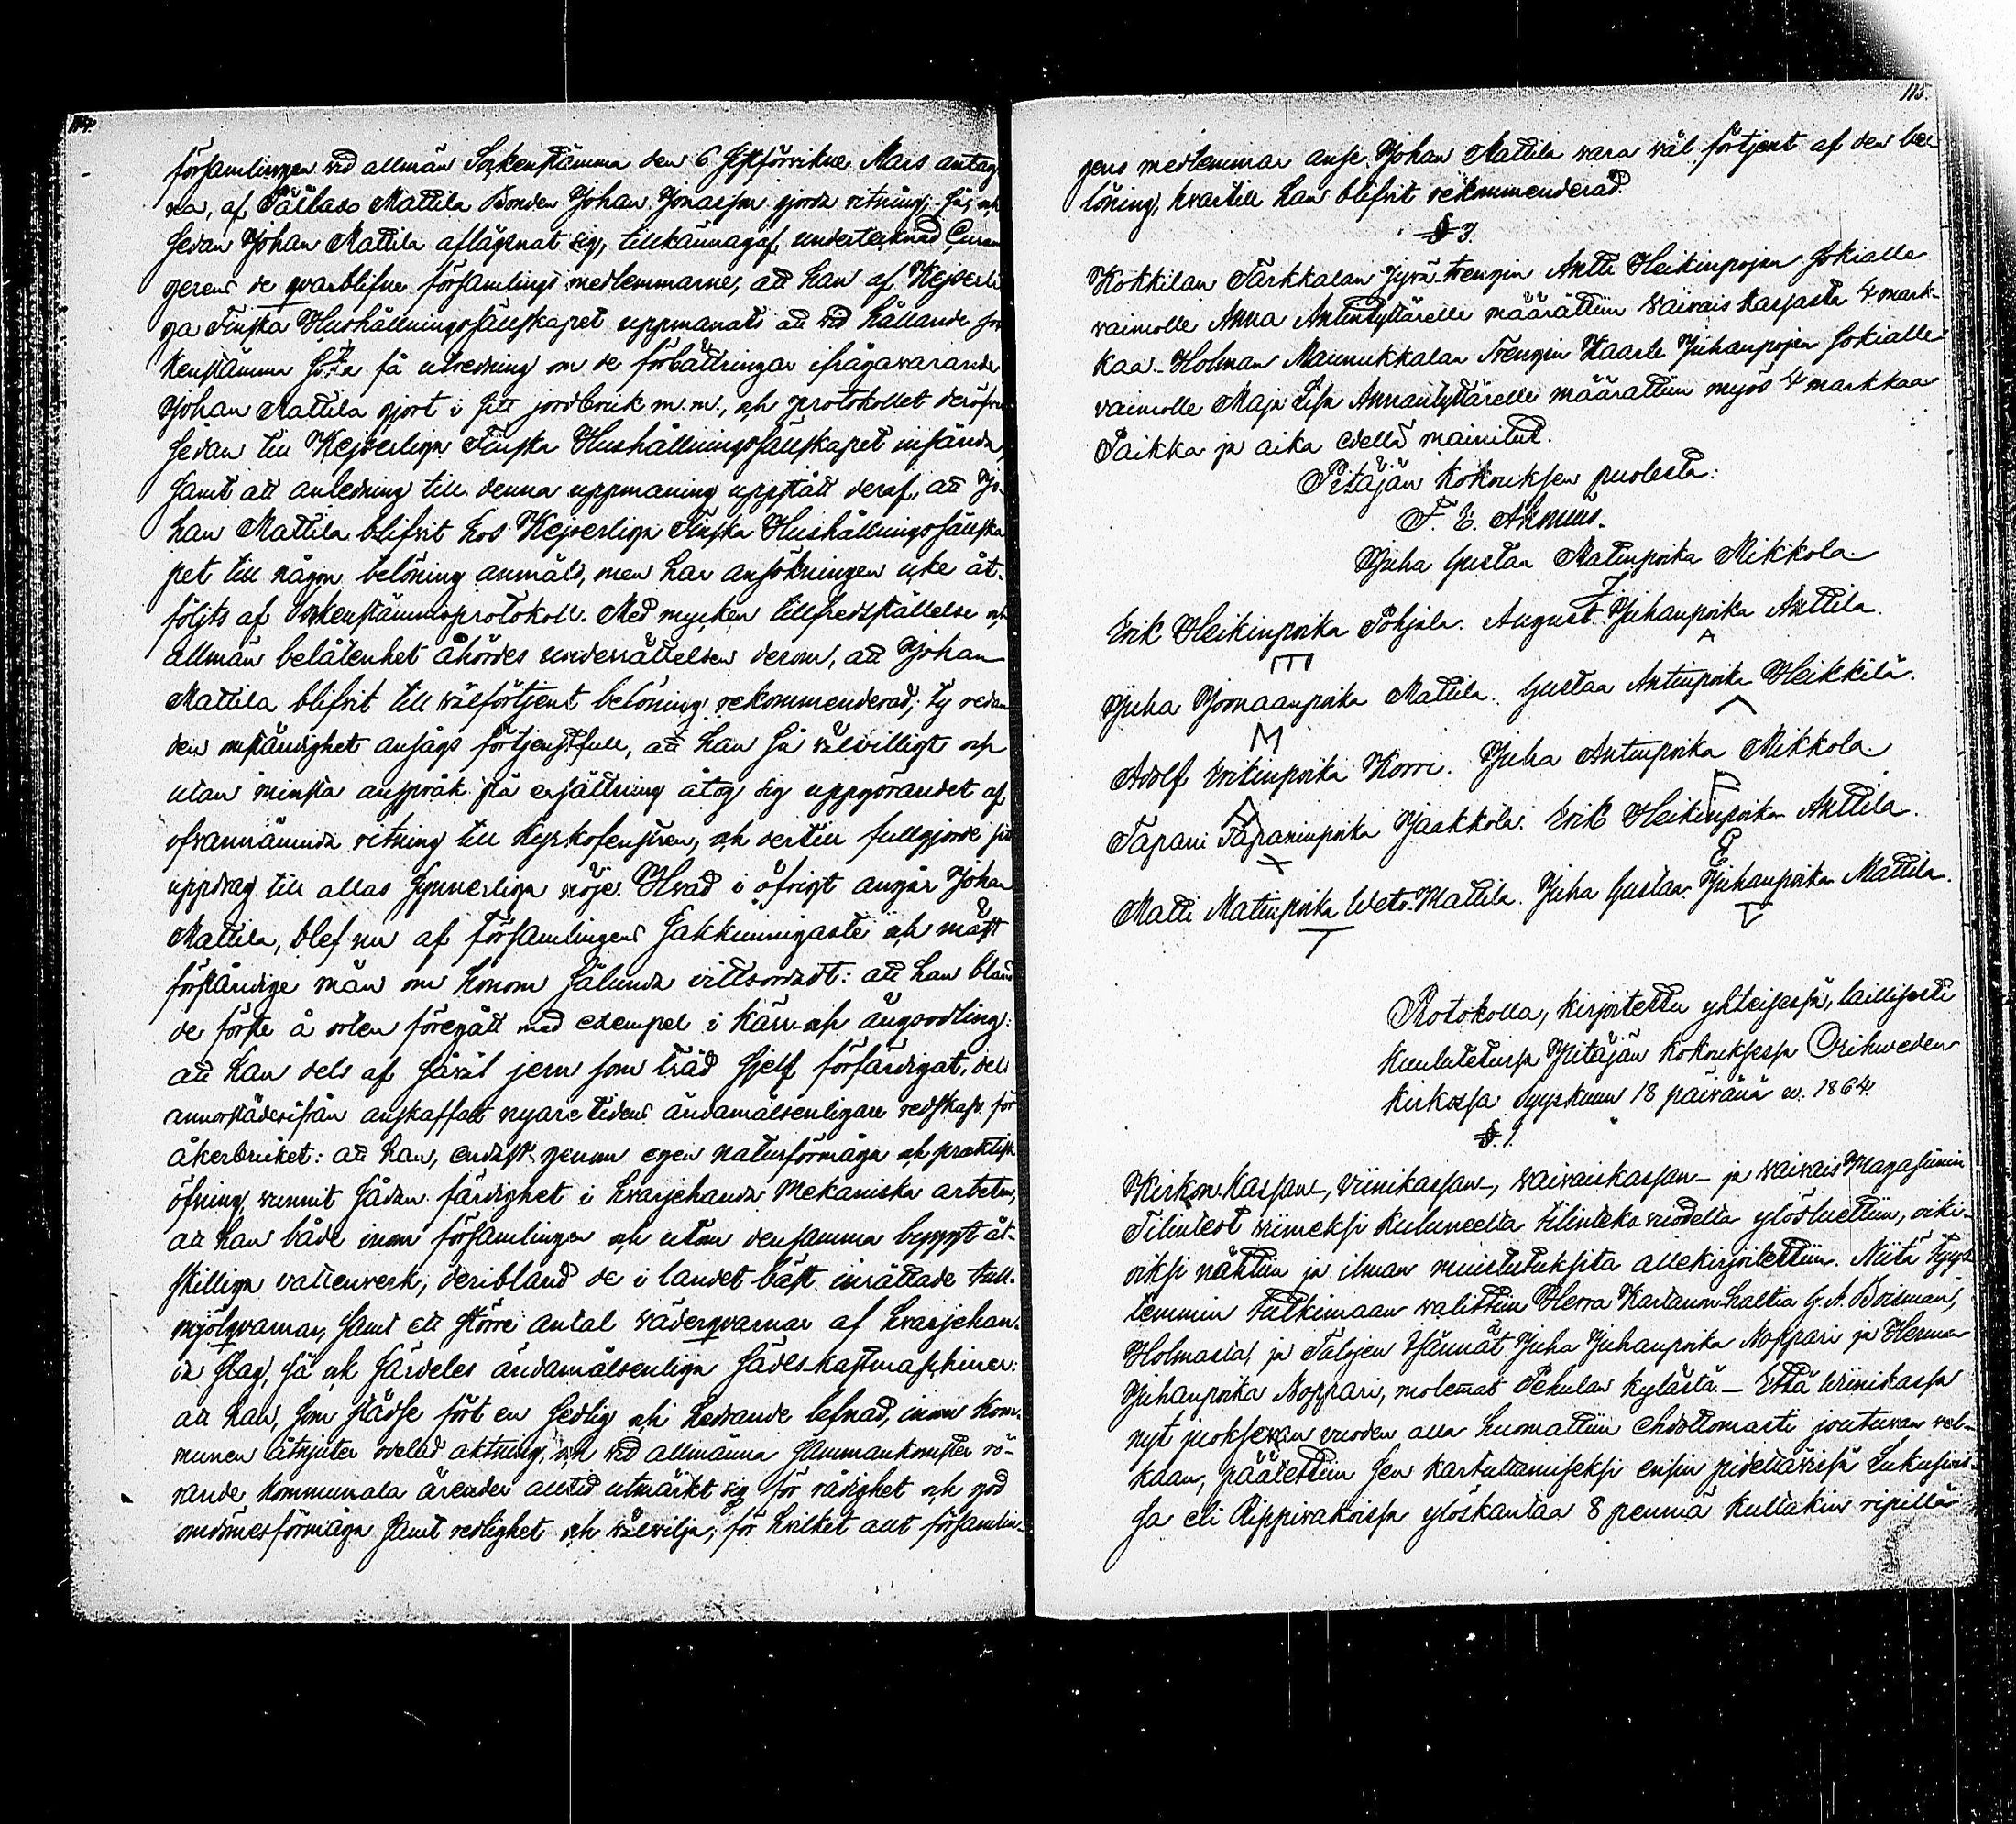 114.
församlingen vid allmän Sockenstämma den 6 sistförvikne Mars antag-
na, af Pällass Mattila Bonden Johan Jonasson gjorda ritning; så, och
sedan Johan Mattila aflägsnat sig, tillkännagaf undertecknad
gerens de qvarblifne församlings medlemmarne, att han af Kejserli-
ga Finska Hushållningssällskapet uppmanats att vid hållande soc-
kenstämma söka få utredning om de förbättringar ifrågavarande
Johan Mattila gjort i sitt jordbruk m.m., och protokollet deröfver
sedan till Kejserliga Finska Hushållningssällskapet insända,
samt att anledning till denna uppmaning uppstått deraf, att Jo-
han Mattila blifvit hos Kejserliga Finska Hushållningssällska-
pet till någon belöning anmäld, men har ansökningen icke åt-
följts af Sockenstämmoprotokoll. Med mycken tillfredsställelse och
allmän belåtenhet åhördes underrättelsen derom, att Johan
Mattila blifvit till välförtjent belöning rekommenderad; ty redan
den omständighet ansågs förtjenstfull, att han så välvilligt och
utan minsta anspråk på ersättning åtog sig uppgörandet af
ofvannämnda ritning till Kyrkofenstren, och dertill fullgjorde sitt
uppdrag till allas synnerliga nöje. Hvad i öfrigt angår Johan
Mattila, blef nu af Församlingens sakkunnigaste och mäst
förståndige män om honom sålunda vittsordadt: att han bland
de förste å orten föregått med exempel i kärr- och ängsodling:
att han dels af såväl jern som träd sjelf förfärdigat, dels
annorstädesifrån anskaffat nyare tidens ändamålsenligare redskap för
åkerbruket: att han, endast genom egen naturförmåga och praktisk
öfning vunnit sådan färdighet i hvarjehanda Mekaniska arbeten,
att han både inom församlingen och utom densamma byggt åt-
skilliga vattenverk, deribland de i landet bäst inrättade tull-
mjölqvarnar, samt ett större antal väderqvarnar af hvarjehan-
da slag, så ock särdeles ändamålsenliga sädes-kastmaschiner:
att han, som städse fört en sedlig och hedrande lefnad, inom kom-
munen åtnjuter odelad aktning, och vid allmänna sammankomster rö-
rande kommunala ärenden alltid utmärkt sig för rådighet och god
omdömesförmåga samt redlighet och välvilja; för hvilket allt församlin-
115.
gens medlemmar anse Johan Mattila vara väl förtjent af den be-
löning, hvartill han blifvit rekommenderad.
§ 3.
Kokkilan Tarkkalan Jyvä-trengin Antti Heikinpojan sokialle
vaimolle Anna Antintyttärelle määrättiin Waivais kassasta 4 mark-
kaa. Holman Maunukkalan Trengin Kaarle Juhanpojan sokialle
vaimolle Maja Lisa Annantyttärelle määrattiin myös 4 markkaa
Paikka ja aika edellä mainitut.
Pitäjän Kokouksen puolesta:
F. E. Ahonius.
Juha Gustaa Matinpoika Mikkola.
Erik Heikinpoika Pohjala. August Juhanpoika Anttila.
Juha Joonaanpoika Mattila. Gustaa Antinpoika Heikkilä.
Adolf Erikinpoika Korri. Juha Antinpoika Mikkola.
Tapani Tapaninpoika Jaakkola. Erik Heikinpoika Anttila.
Matti Matinpoika Weto-Mattila. Juha Gustaa Juhanpoika Mattila.
Protokolla, kirjoitettu yhteisessä, laillisesti
kuulutetussa Pitäjän kokouksessa Orihweden
kirkossa Syyskuun 18 päivänä w. 1864.
§. 1.
Kirkon Kassan-, Viinikassan-, Waivaiskassan- ja Waivais Magasiinin
Tilintest viimeksi kuluneelta tilinteko vuodelta ylösluettiin, oiki-
oiksi nähtiin ja ilman muistutuksita allekirjoitettiin. Niitä tyys-
temmin tutkimaan valittiin Herra Kartanon haltia G. A. Boisman,
Holmasta, ja Talojen Isännät Juha Juhanpoika Noppari ja Herman
Juhanpoika Noppari, molemmat Pehulan kylästä. — Että Wiinikassa
nyt juoksevan vuoden alla huomattiin ehdottomasti joutuvan vel-
kaan, päätettiin sen kartuttamiseksi ensin pidettävissä Lukusiois-
sa eli Rippivakoissa ylöskantaa 8 penniä kultakin ripillä-